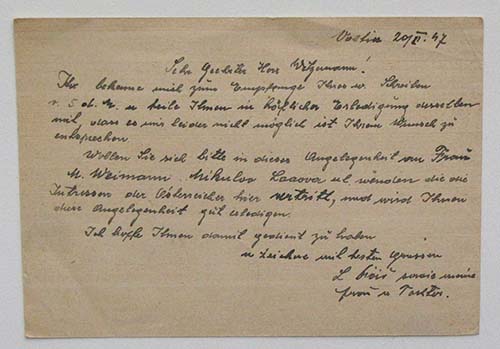 Vsetin 20/XI. 47
Sehr Geehrter Herr Witzmann!
Ihr bekenne mich zum Empfange Ihres w. Schreiben
v. 5 d. M. u teile Ihnen in höflicher Erledigung desselben
mit, dass es mir leider nicht möglich ist Ihrem Wunsch zu
entsprechen
Wollen Sie sich bitte in dieser Angelegenheit an Frau
M. Weimann Mikulov ul wenden die die
Intressen der Österreicher hier vertritt, und wird Ihnen
diese Angelegenheit gut erledigen.
Ich hoffe Ihnen damit gedient zu haben
u zeichne mit besten Grüssen
L sowie meine
Frau u Tochter.